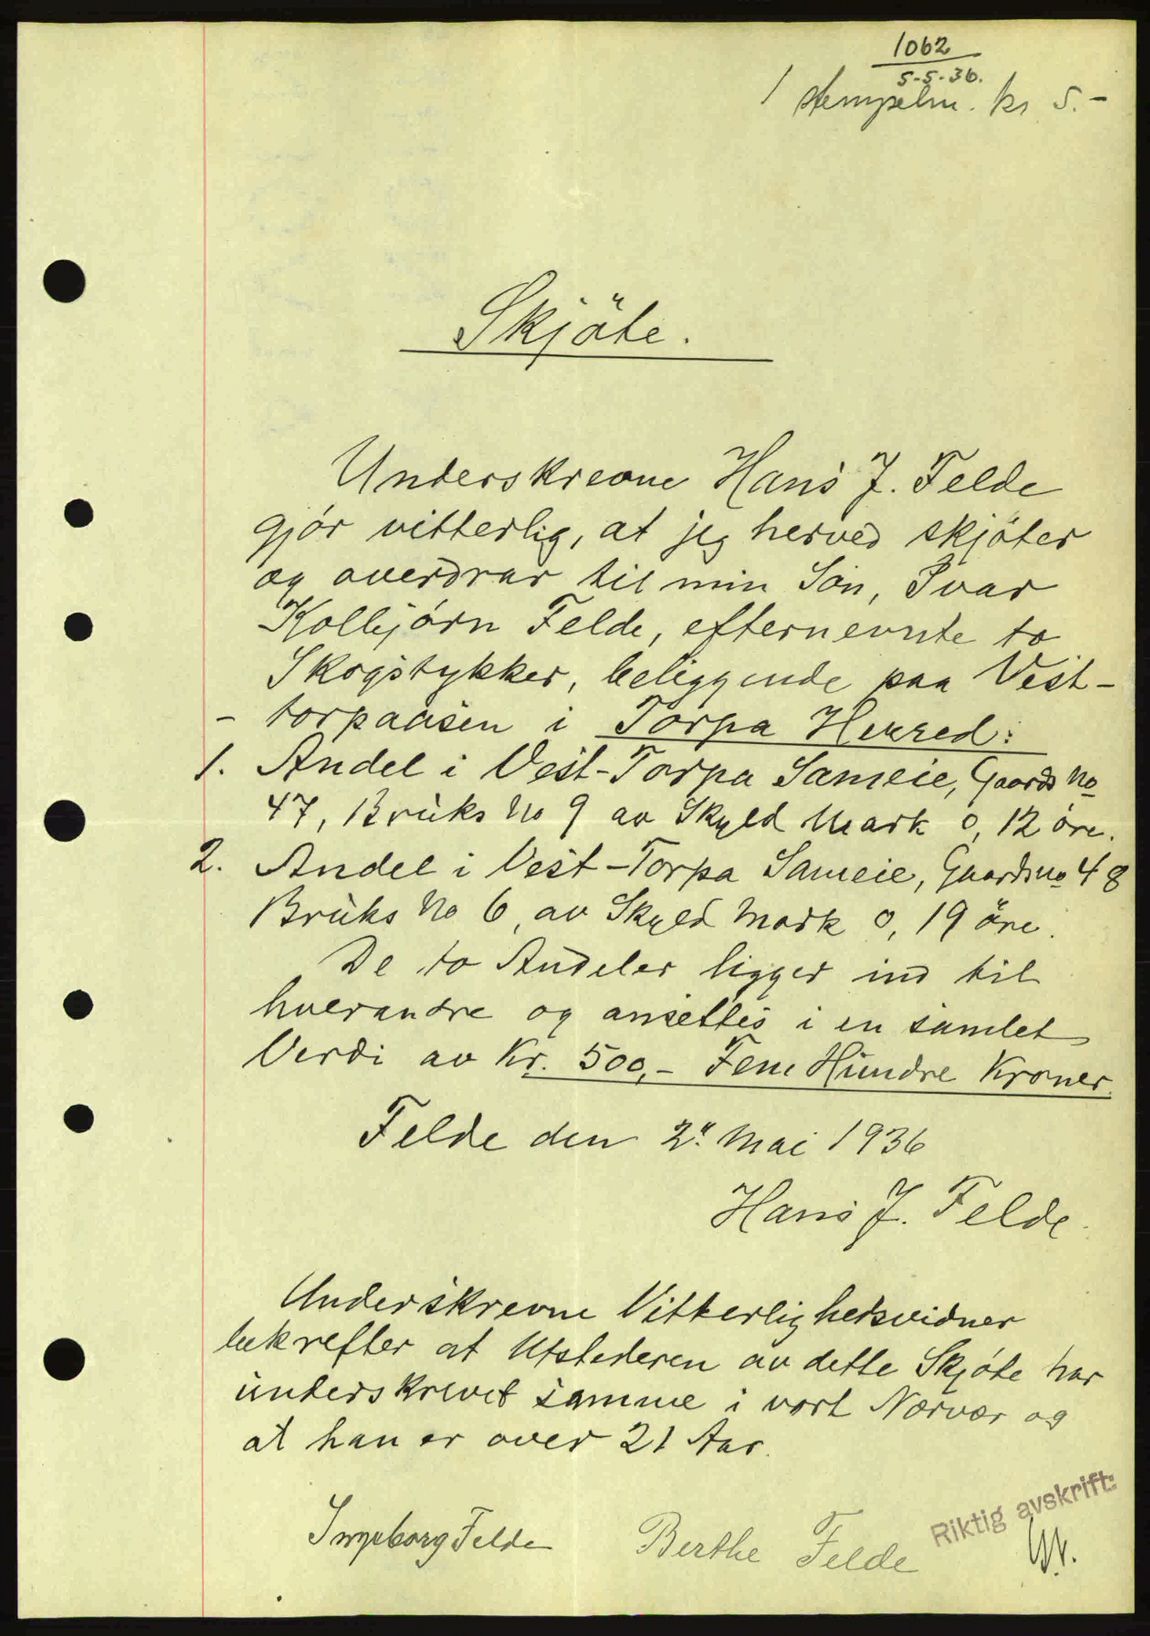 1062
5-5-36.
1 stempelm. kr 5.-
Skjöte.
Underskrevne Hans J. Felde
gjör vitterlig, at jeg herved skjöter
og overdrar til min Sön, Ivar
Kolbjörn Felde, efternevnte to
Skogstykker, beliggende paa Vest-
- torpaasen i Torpa Herred:
1. Andel i Vest-Torpa Sameie, Gaards No
47, Bruks No 9 av Skyld Mark 0,12 öre.
2. Andel i Vest-Torpa Sameie, Gaardsno 48
Bruks No 6, av Skyld Mark 0,19 öre.
De to Andeler ligger ind til
hverandre og ansettes i en samlet
Verdi av Kr. 500,- Fem Hundre Kroner.
Felde den 2" Mai 1936
Hans J. Felde.
Underskrevne Vitterlighetsvidner
bekrefter at Utstederen av dette Skjöte har
underskrevet samme i vort Nærvær og
at han er over 21 Aar.
Ingeborg Felde Berthe Felde
Riktig avskrift: